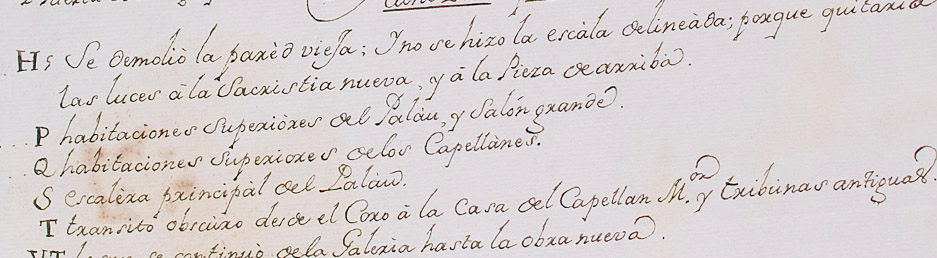 H; Se demoliò la parèd vieja; Y no se hizo la escàla delineàda; porque quitaria
las luces â la Sacristia nueva, y â la Pieza de arriba.
P habitaciones Superiòres del Palàu, y Salón grande.
Q habitaciones Superiores delos Capellànes.
S escalèra principàl del Palàu.
T transito obscùro desde el Coro â la Casa del Capellan M.or y tribùnas antiguas.
se continuò dela Galeria hasta la obra nueva.